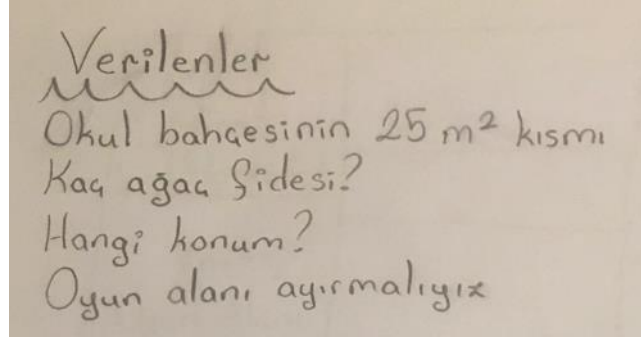 Verilenler
Okul bahçesinin 25 m² kısmı
Kaç ağaç fidesi?
Hangi konum?
Oyun alanı ayırmalıyız